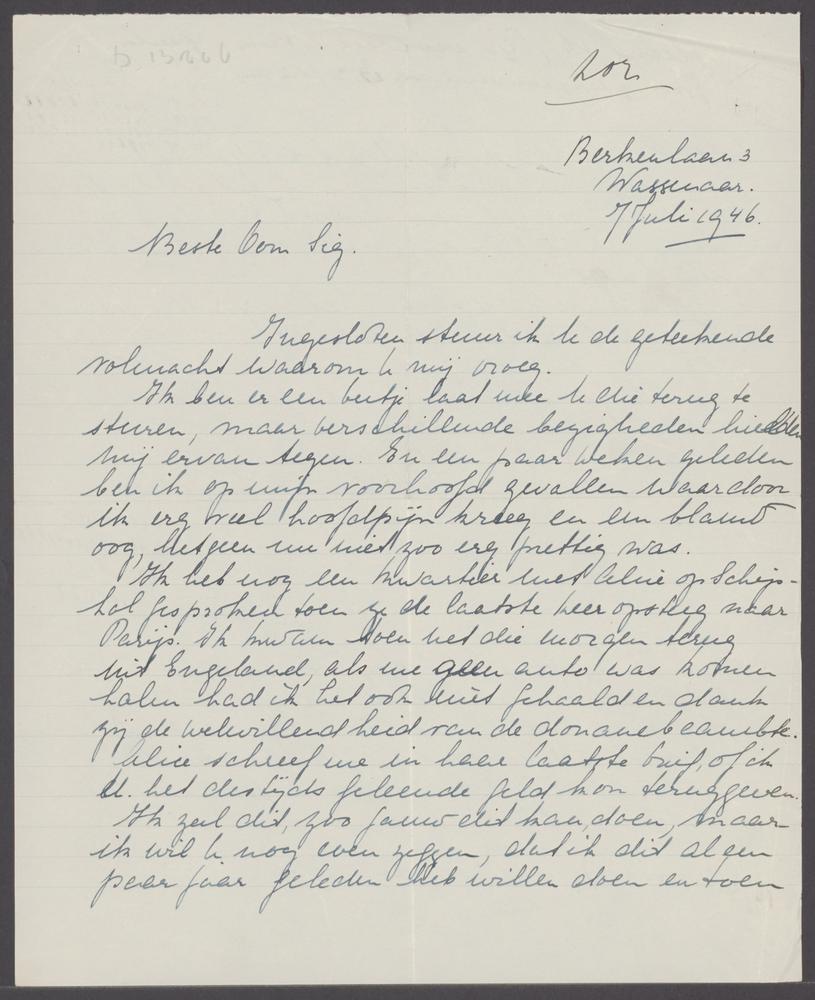 Berkenlaan 3
Wassenaar.
7 Juli 1946.
Beste Oom Sig.
Ingesloten stuur ik U de geteekende
volmacht waarom U mij vroeg.
Ik ben er een beetje laat mee U die terug te
sturen, maar verschillende bezigheden hielden
mij ervan tegen. En een paar weken geleden
ben ik op mijn voorhoofd gevallen waardoor
ik erg veel hoofdpijn kreeg en een blauw
oog, hetgeen nu niet zoo erg prettig was.
Ik heb nog een kwartier met Alice op Schip-
hol gesproken toen ze de laatste keer opsteeg naar
Parijs. Ik kwam toen net die morgen terug
uit Engeland, als me geen auto was komen
halen had ik het ook niet gehaald en dank
zij de welwillendheid van de douanebeambte.
Alice schreef me in haar laatste brief, of ik
U. het destijds geleende geld kon teruggeven.
Ik zal dit, zoo gauw dit kan, doen, maar
ik wil U nog even zeggen, dat ik dit al een
paar jaar geleden heb willen doen en toen